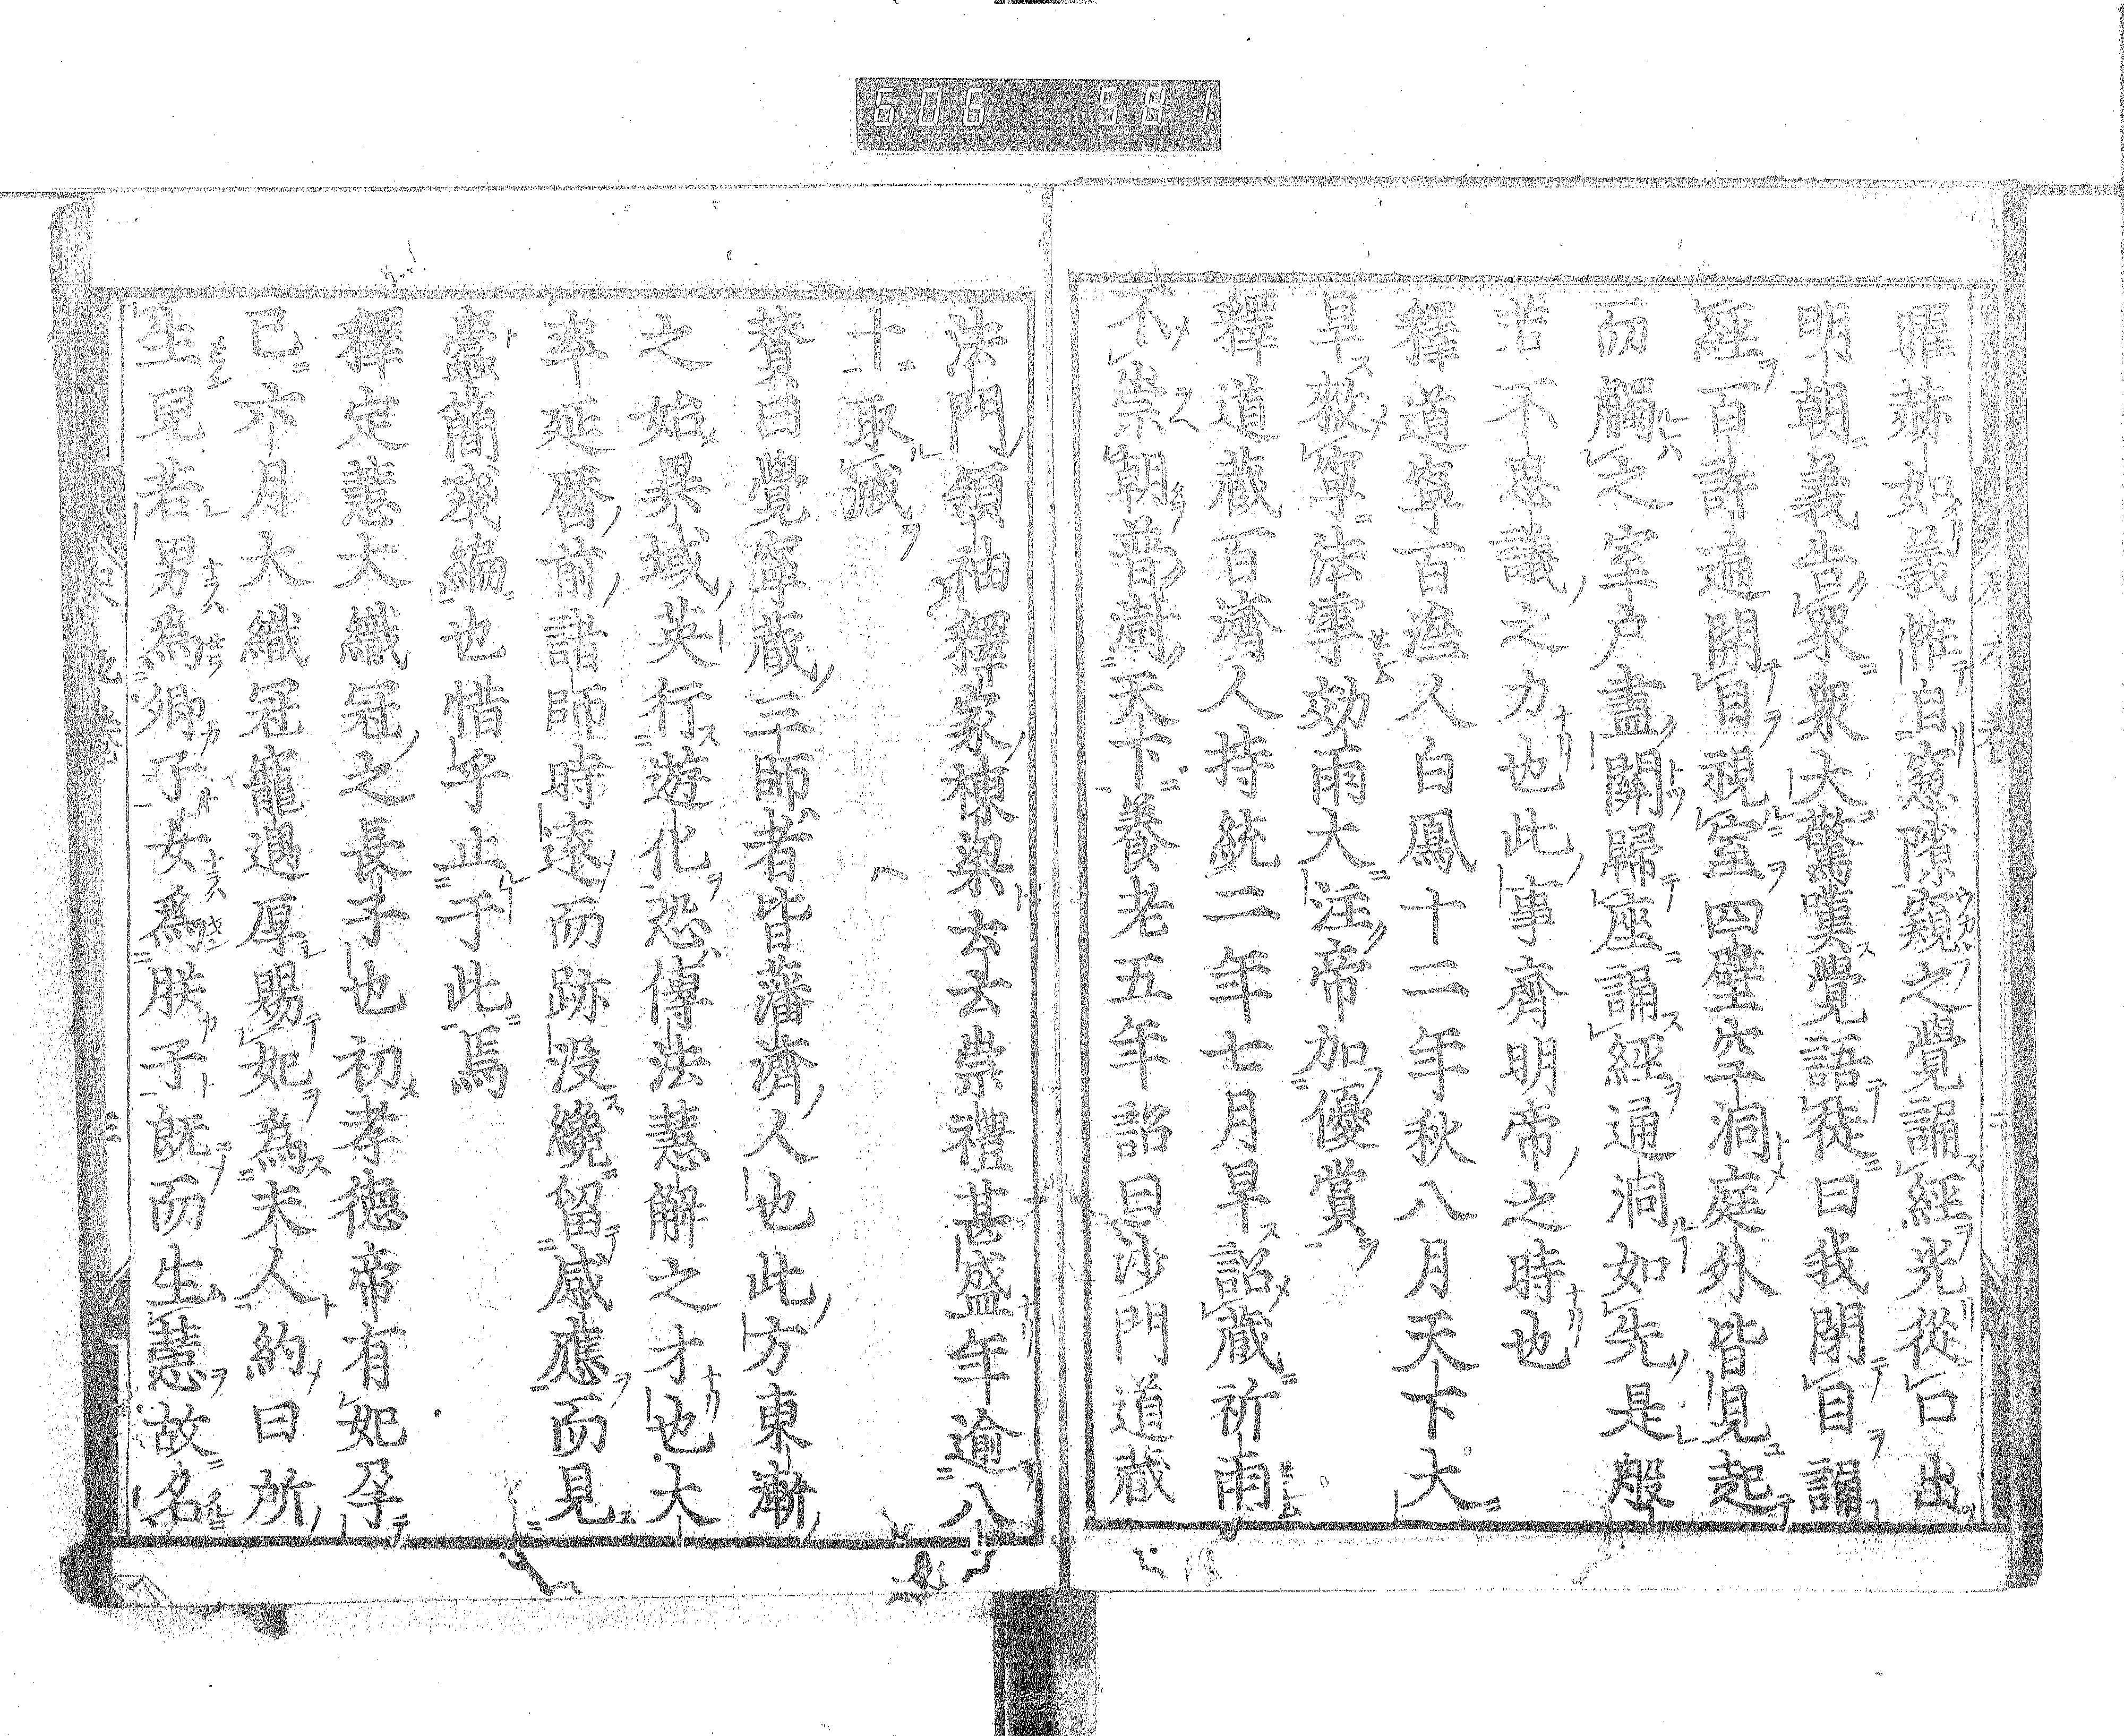 606 581
曜赫如義恠自窓隙窺之覺誦經光從口出
明朝義告衆衆大驚嘆覺語徒曰我閉目誦
經百許遍開目視室四壁空洞庭外皆見起
而觸之室戸盡關歸座誦經通洞如先是般
若不思議之力也此事齊明帝之時也
釋道寧百濟人白鳳十二年秋八月天下大
旱敕寧法雩効雨大注帝加優賞
釋道藏百濟人持統二年七月旱詔藏祈雨
不崇朝普澍天下養老五年詔曰沙門道藏
法門領袖釋家棟梁云云崇禮甚盛年逾八
十取滅
賛曰覺寧藏三師者皆藩濟人也此方東漸
之始異域英行遊化恐傳法慧解之才也大
率延曆前諸師時遠而跡沒纔留感應而見
蠹簡殘編也惜乎止于此焉
釋定慧大織冠之長子也初孝德帝有妃孕
已六月大織冠寵遇厚賜妃為夫人約曰所
生兒若男為卿子女為朕子既而生慧故名